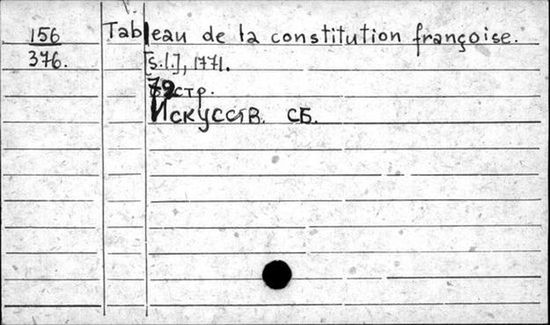 156 Tableau de la constitution françoise.
376. [s.l.], 1771.
79 стр.
Искусств. сб.